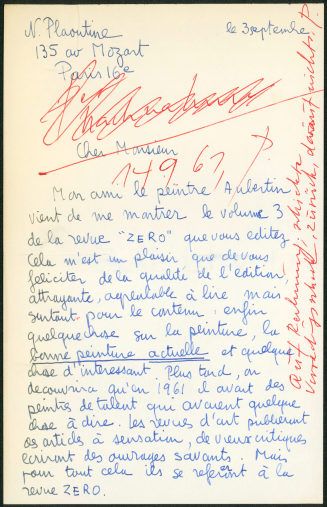 N. Plaoutine
le 3 septembre
135 av Mozart
Paris 16e
Cher Monsieur
14961, P.
Mon ami le peintre Aubertin
vient de me montrer le volume 3
de la revue "ZERO" que vous editez.
Cela m'est un plaisir que de vous
feliciter de la qualité de l'edition
attrayante, agréable à lire mais
surtout pour le contenu. enfin
quelque chose sur la peinture, la
bonne peinture actuelle et quelque
chose d'interessant. Plus tard, on
decouvrira qu'en 1961 il avait des
peintres de talent qui avaient quelque
chose à dire. Les revues d'art publieront
des articles à sensation, de vieux critiques
ecriront des ouvrages savants. Mais
pour tout cela ils se referont à la
revue ZERO.
auf Rechnung schickte
zurück, darauf nichts! P.